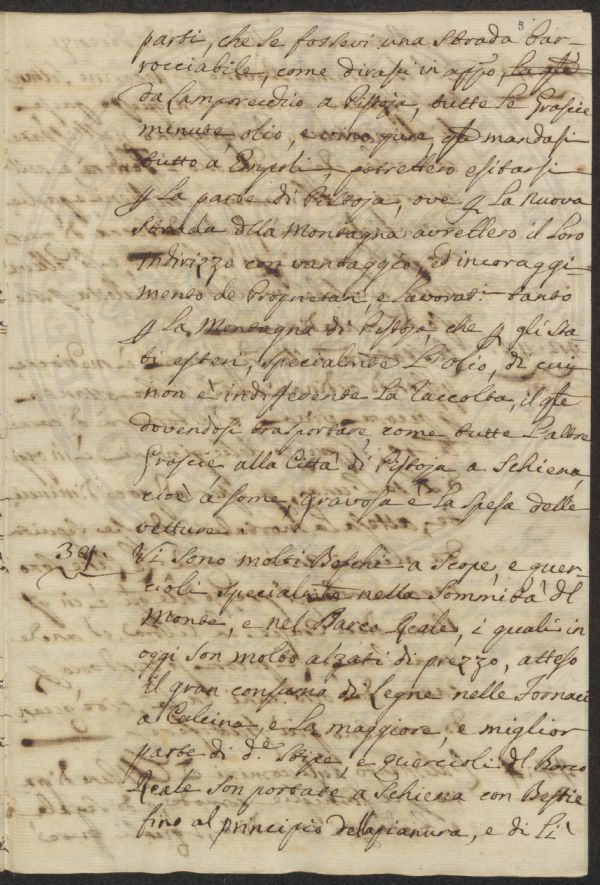 parti, che se fossevi una strada bar-
rocciabile, come dirassi in appo,
da Lamporecchio a Pistoja, tutte le Grascie
minute, olio, e vino pure, che mandasi
tutto a Empoli, potrebbero esitarsi
p La parte di Pistoja, ove p La nuova
Strada dlla Montagna avrebbero il Loro
indirizzo con vantaggio, ed incoraggi
mento de Proprietari, e Lavorat: tanto
p La Montagna di Pistoja, che p gli sta-
ti esteri, specialmte L'olio, di cui
non è indifferente La raccolta, il qle
dovendosi trasportare, come tutte L'altre
Grascie alla Città di Pistoja a Schiena,
cioè á some, gravosa è La spesa delle
vetture.
39. Vi sono molti Boschi a Scope, e quer-
cioli specialmte nella Sommità dl
Monte, e nel Barco Reale, i quali in
oggi son molto alzati di prezzo, atteso
il gran consumo di Legne nelle Fornaci
a Calcina, e La maggiore, e miglior
parte di de Stipe, e quercioli dl Barco
Reale son portate a Schiena con Bestie
fino al principio della pianura, e di Lì